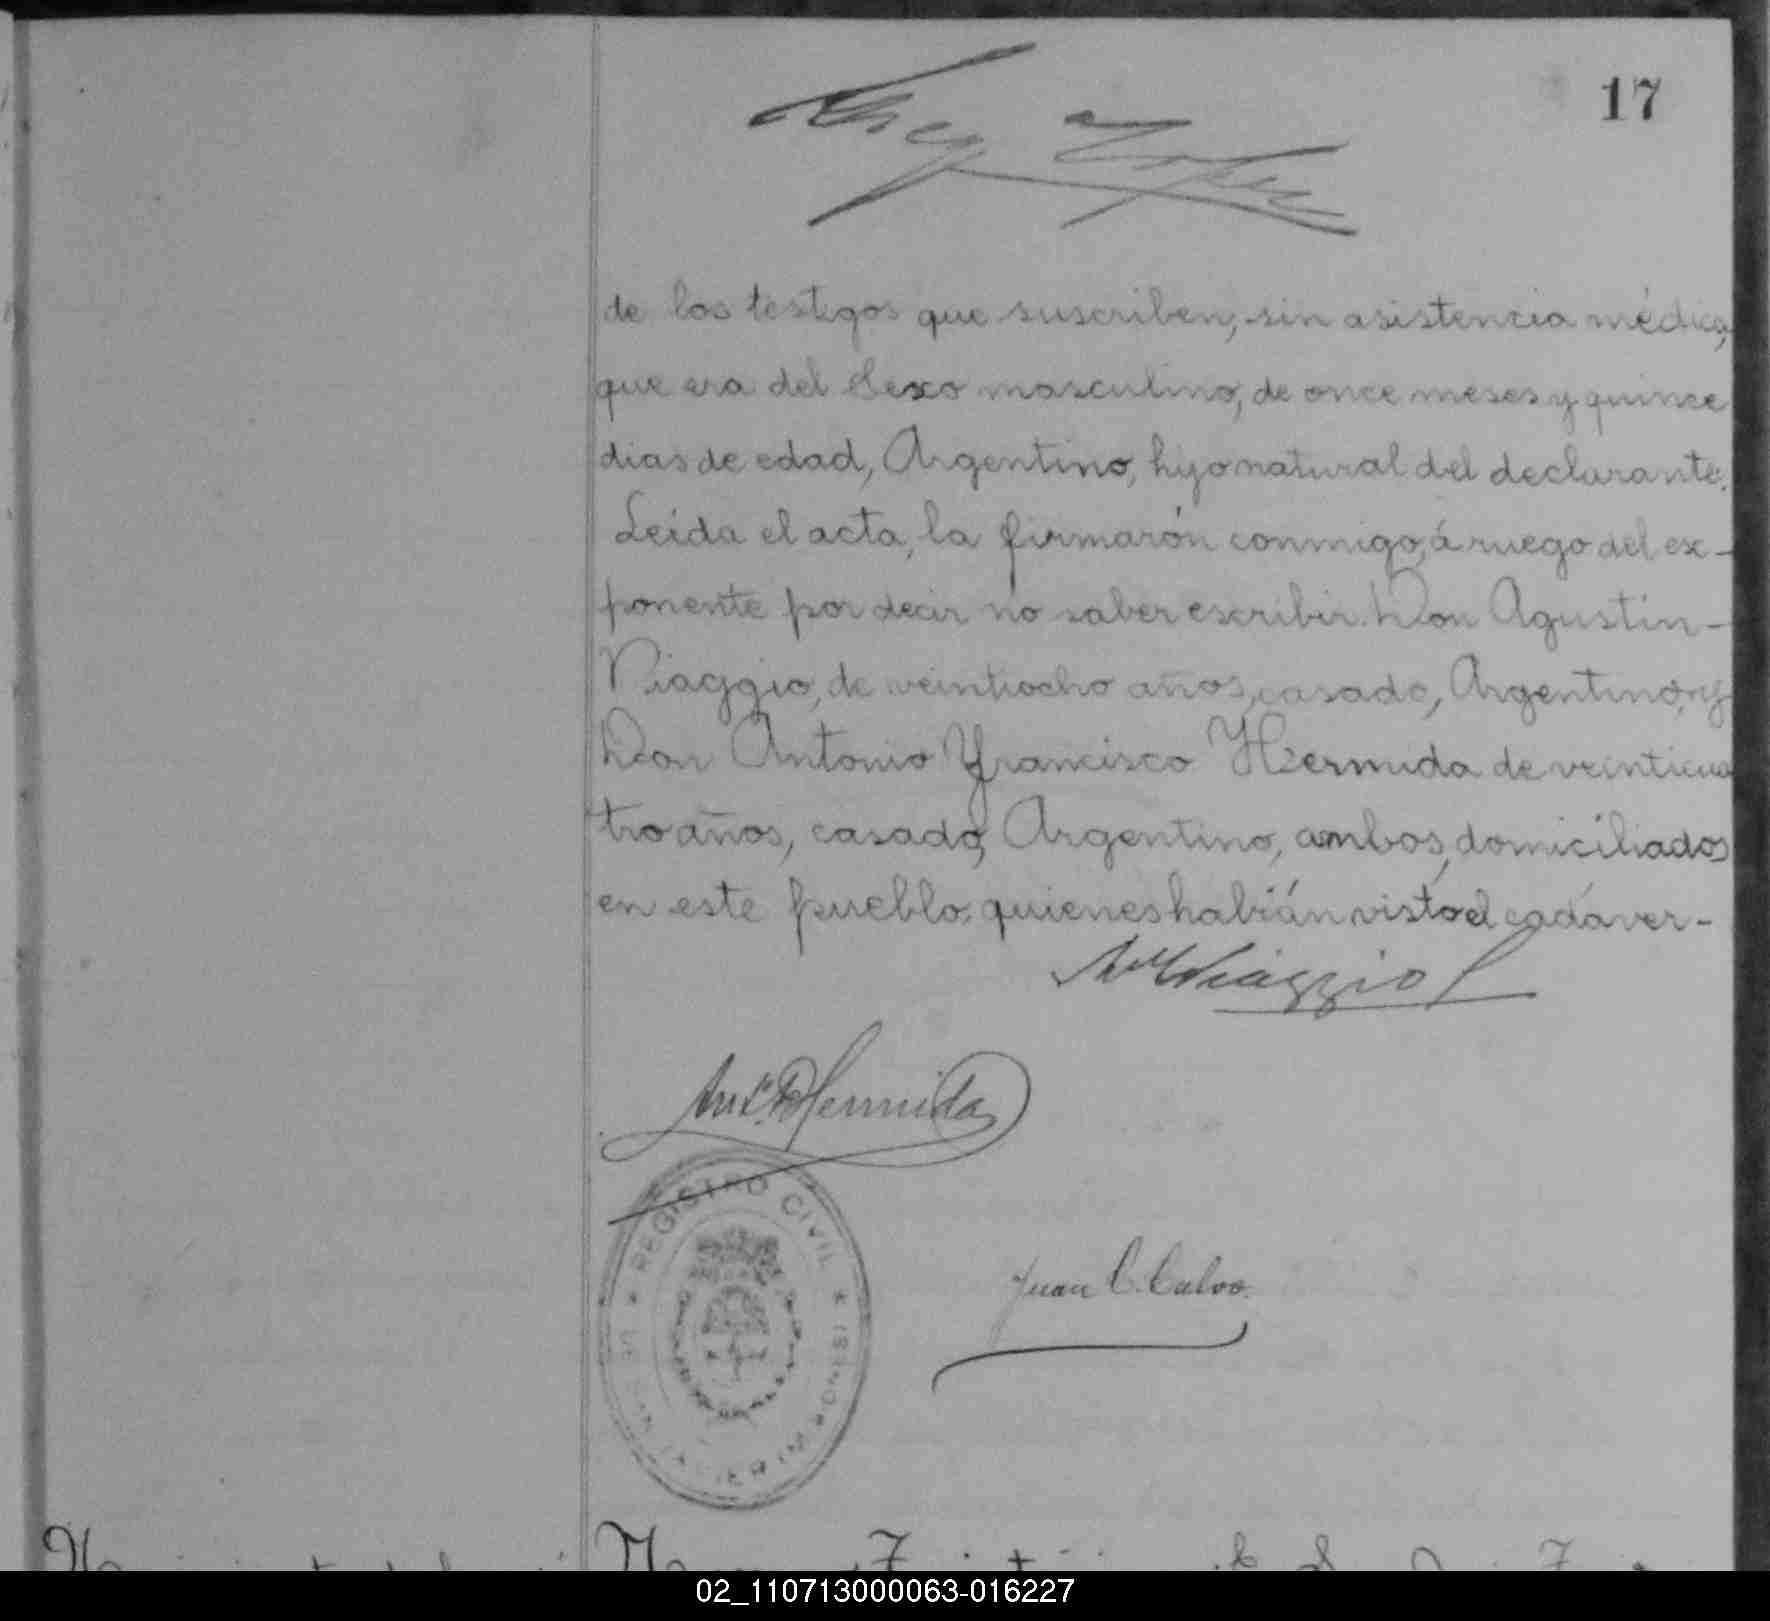 17
de los testigos que suscriben, sin asistencia médica,
que era del Sexo masculino, de once meses y quince
dias de edad, Argentino, hijo natural del declarante.
Leída el acta, la firmarón conmigo, á ruego del ex-
ponente por decir no saber escribir. Don Agustin-
Viaggio, de veintiocho años, casado, Argentino, y
Don Antonio Francisco Hermida de veinticua
tro años, casado, Argentino, ambos, domiciliados
en este pueblo, quienes habián visto el cadáver-
Viaggio
Ant. F Hermida
REGISTRO CIVIL
Juan C. Calvo.
02_110713000063-016227